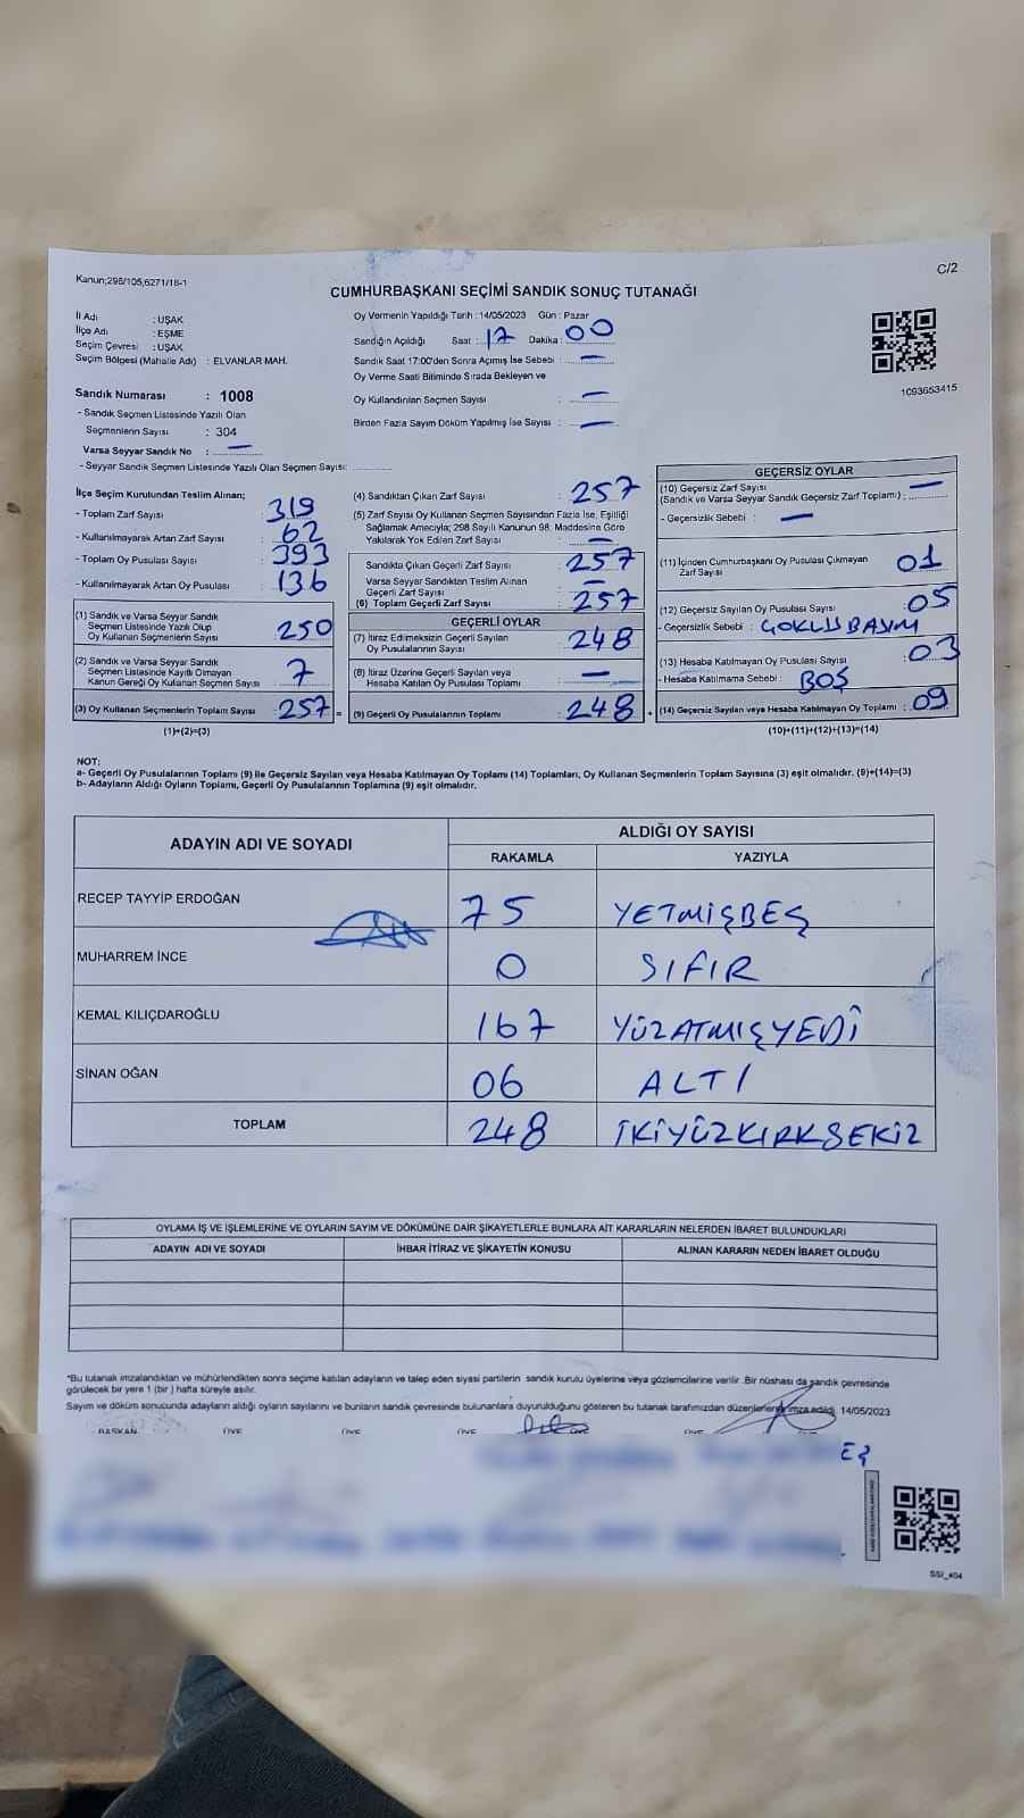 Kanun;298/105,6271/18-1
C/2
CUMHURBAŞKANI SEÇİMİ SANDIK SONUÇ TUTANAĞI
İl Adı : UŞAK
İlçe Adı : EŞME
Seçim Çevresi : UŞAK
Seçim Bölgesi (Mahalle Adı) : ELVANLAR MAH.
Oy Vermenin Yapıldığı Tarih : 14/05/2023 Gün : Pazar
Sandığın Açıldığı Saat : 17 Dakika : 00
Sandık Saat 17:00'den Sonra Açımış İse Sebebi : —
Oy Verme Saati Bitiminde Sırada Bekleyen ve
Oy Kullandırılan Seçmen Sayısı : —
Birden Fazla Sayım Döküm Yapılmış İse Sayısı : —
1093653415
Sandık Numarası : 1008
- Sandık Seçmen Listesinde Yazılı Olan
Seçmenlerin Sayısı : 304
Varsa Seyyar Sandık No : —
- Seyyar Sandık Seçmen Listesinde Yazılı Olan Seçmen Sayısı:
İlçe Seçim Kurulundan Teslim Alınan;
- Toplam Zarf Sayısı : 319
- Kullanılmayarak Artan Zarf Sayısı : 62
- Toplam Oy Pusulası Sayısı : 393
- Kullanılmayarak Artan Oy Pusulası : 136
(1) Sandık ve Varsa Seyyar Sandık
Seçmen Listesinde Yazılı Olup
Oy Kullanan Seçmenlerin Sayısı : 250
(2) Sandık ve Varsa Seyyar Sandık
Seçmen Listesinde Kayıtlı Olmayan
Kanun Gereği Oy Kullanan Seçmen Sayısı : 7
(3) Oy Kullanan Seçmenlerin Toplam Sayısı : 257 =
(1)+(2)=(3)
(4) Sandıktan Çıkan Zarf Sayısı : 257
(5) Zarf Sayısı Oy Kullanan Seçmen Sayısından Fazla İse, Eşitliği
Sağlamak Amacıyla; 298 Sayılı Kanunun 98. Maddesine Göre
Yakılarak Yok Edilen Zarf Sayısı : —
Sandıkta Çıkan Geçerli Zarf Sayısı : 257
Varsa Seyyar Sandıktan Teslim Alınan
Geçerli Zarf Sayısı : —
(6) Toplam Geçerli Zarf Sayısı : 257
GEÇERLİ OYLAR
(7) İtiraz Edilmeksizin Geçerli Sayılan
Oy Pusulalarının Sayısı : 248
(8) İtiraz Üzerine Geçerli Sayılan veya
Hesaba Katılan Oy Pusulası Toplamı : —
(9) Geçerli Oy Pusulalarının Toplamı : 248 +
GEÇERSİZ OYLAR
(10) Geçersiz Zarf Sayısı
(Sandık ve Varsa Seyyar Sandık Geçersiz Zarf Toplamı) : —
- Geçersizlik Sebebi : —
(11) İçinden Cumhurbaşkanı Oy Pusulası Çıkmayan
Zarf Sayısı : 01
(12) Geçersiz Sayılan Oy Pusulası Sayısı : 05
- Geçersizlik Sebebi : ÇOKLU BASIM
(13) Hesaba Katılmayan Oy Pusulası Sayısı : 03
- Hesaba Katılmama Sebebi : BOŞ
(14) Geçersiz Sayılan veya Hesaba Katılmayan Oy Toplamı : 09
(10)+(11)+(12)+(13)=(14)
NOT:
a- Geçerli Oy Pusulalarının Toplamı (9) ile Geçersiz Sayılan veya Hesaba Katılmayan Oy Toplamı (14) Toplamları, Oy Kullanan Seçmenlerin Toplam Sayısına (3) eşit olmalıdır. (9)+(14)=(3)
b- Adayların Aldığı Oyların Toplamı, Geçerli Oy Pusulalarının Toplamına (9) eşit olmalıdır.
ADAYIN ADI VE SOYADI
ALDIĞI OY SAYISI
RAKAMLA YAZIYLA
RECEP TAYYİP ERDOĞAN 75 YETMİŞBEŞ
MUHARREM İNCE 0 SIFIR
KEMAL KILIÇDAROĞLU 167 YÜZATMIŞYEDİ
SİNAN OĞAN 06 ALTI
TOPLAM 248 İKİYÜZKIRKSEKİZ
OYLAMA İŞ VE İŞLEMLERİNE VE OYLARIN SAYIM VE DÖKÜMÜNE DAİR ŞİKAYETLERLE BUNLARA AİT KARARLARIN NELERDEN İBARET BULUNDUKLARI
ADAYIN ADI VE SOYADI İHBAR İTİRAZ VE ŞİKAYETİN KONUSU ALINAN KARARIN NEDEN İBARET OLDUĞU
*Bu tutanak imzalandıktan ve mühürlendikten sonra seçime katılan adayların ve talep eden siyasi partilerin sandık kurulu üyelerine veya gözlemcilerine verilir. Bir nüshası da sandık çevresinde
görülecek bir yere 1 (bir) hafta süreyle asılır.
Sayım ve döküm sonucunda adayların aldığı oyların sayılarını ve bunların sandık çevresinde bulunanlara duyurulduğunu gösteren bu tutanak tarafımızdan düzenlenerek imza edildi. 14/05/2023
BAŞKAN ÜYE ÜYE ÜYE ÜYE